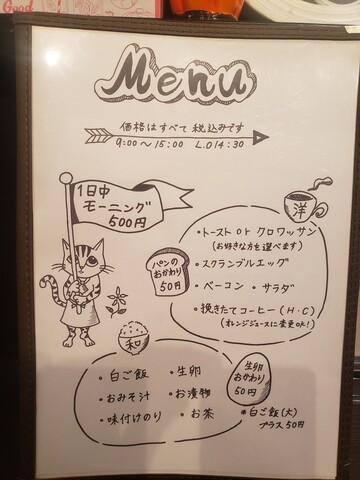 Good
Menu
価格はすべて 税込みです
9:00～15:00 L.O14:30
1日中
モーニング
500円
洋
・トースト or クロワッサン
(お好きな方を選べます)
・スクランブルエッグ
・ベーコン ・サラダ
・挽きたてコーヒー(H・C)
(オレンジジュースに変更OK!)
パンの
おかわり
50円
和
・白ご飯 ・生卵
・おみそ汁 ・お漬物
・味付けのり ・お茶
生卵
おかわり
50円
*白ご飯(大)
プラス50円